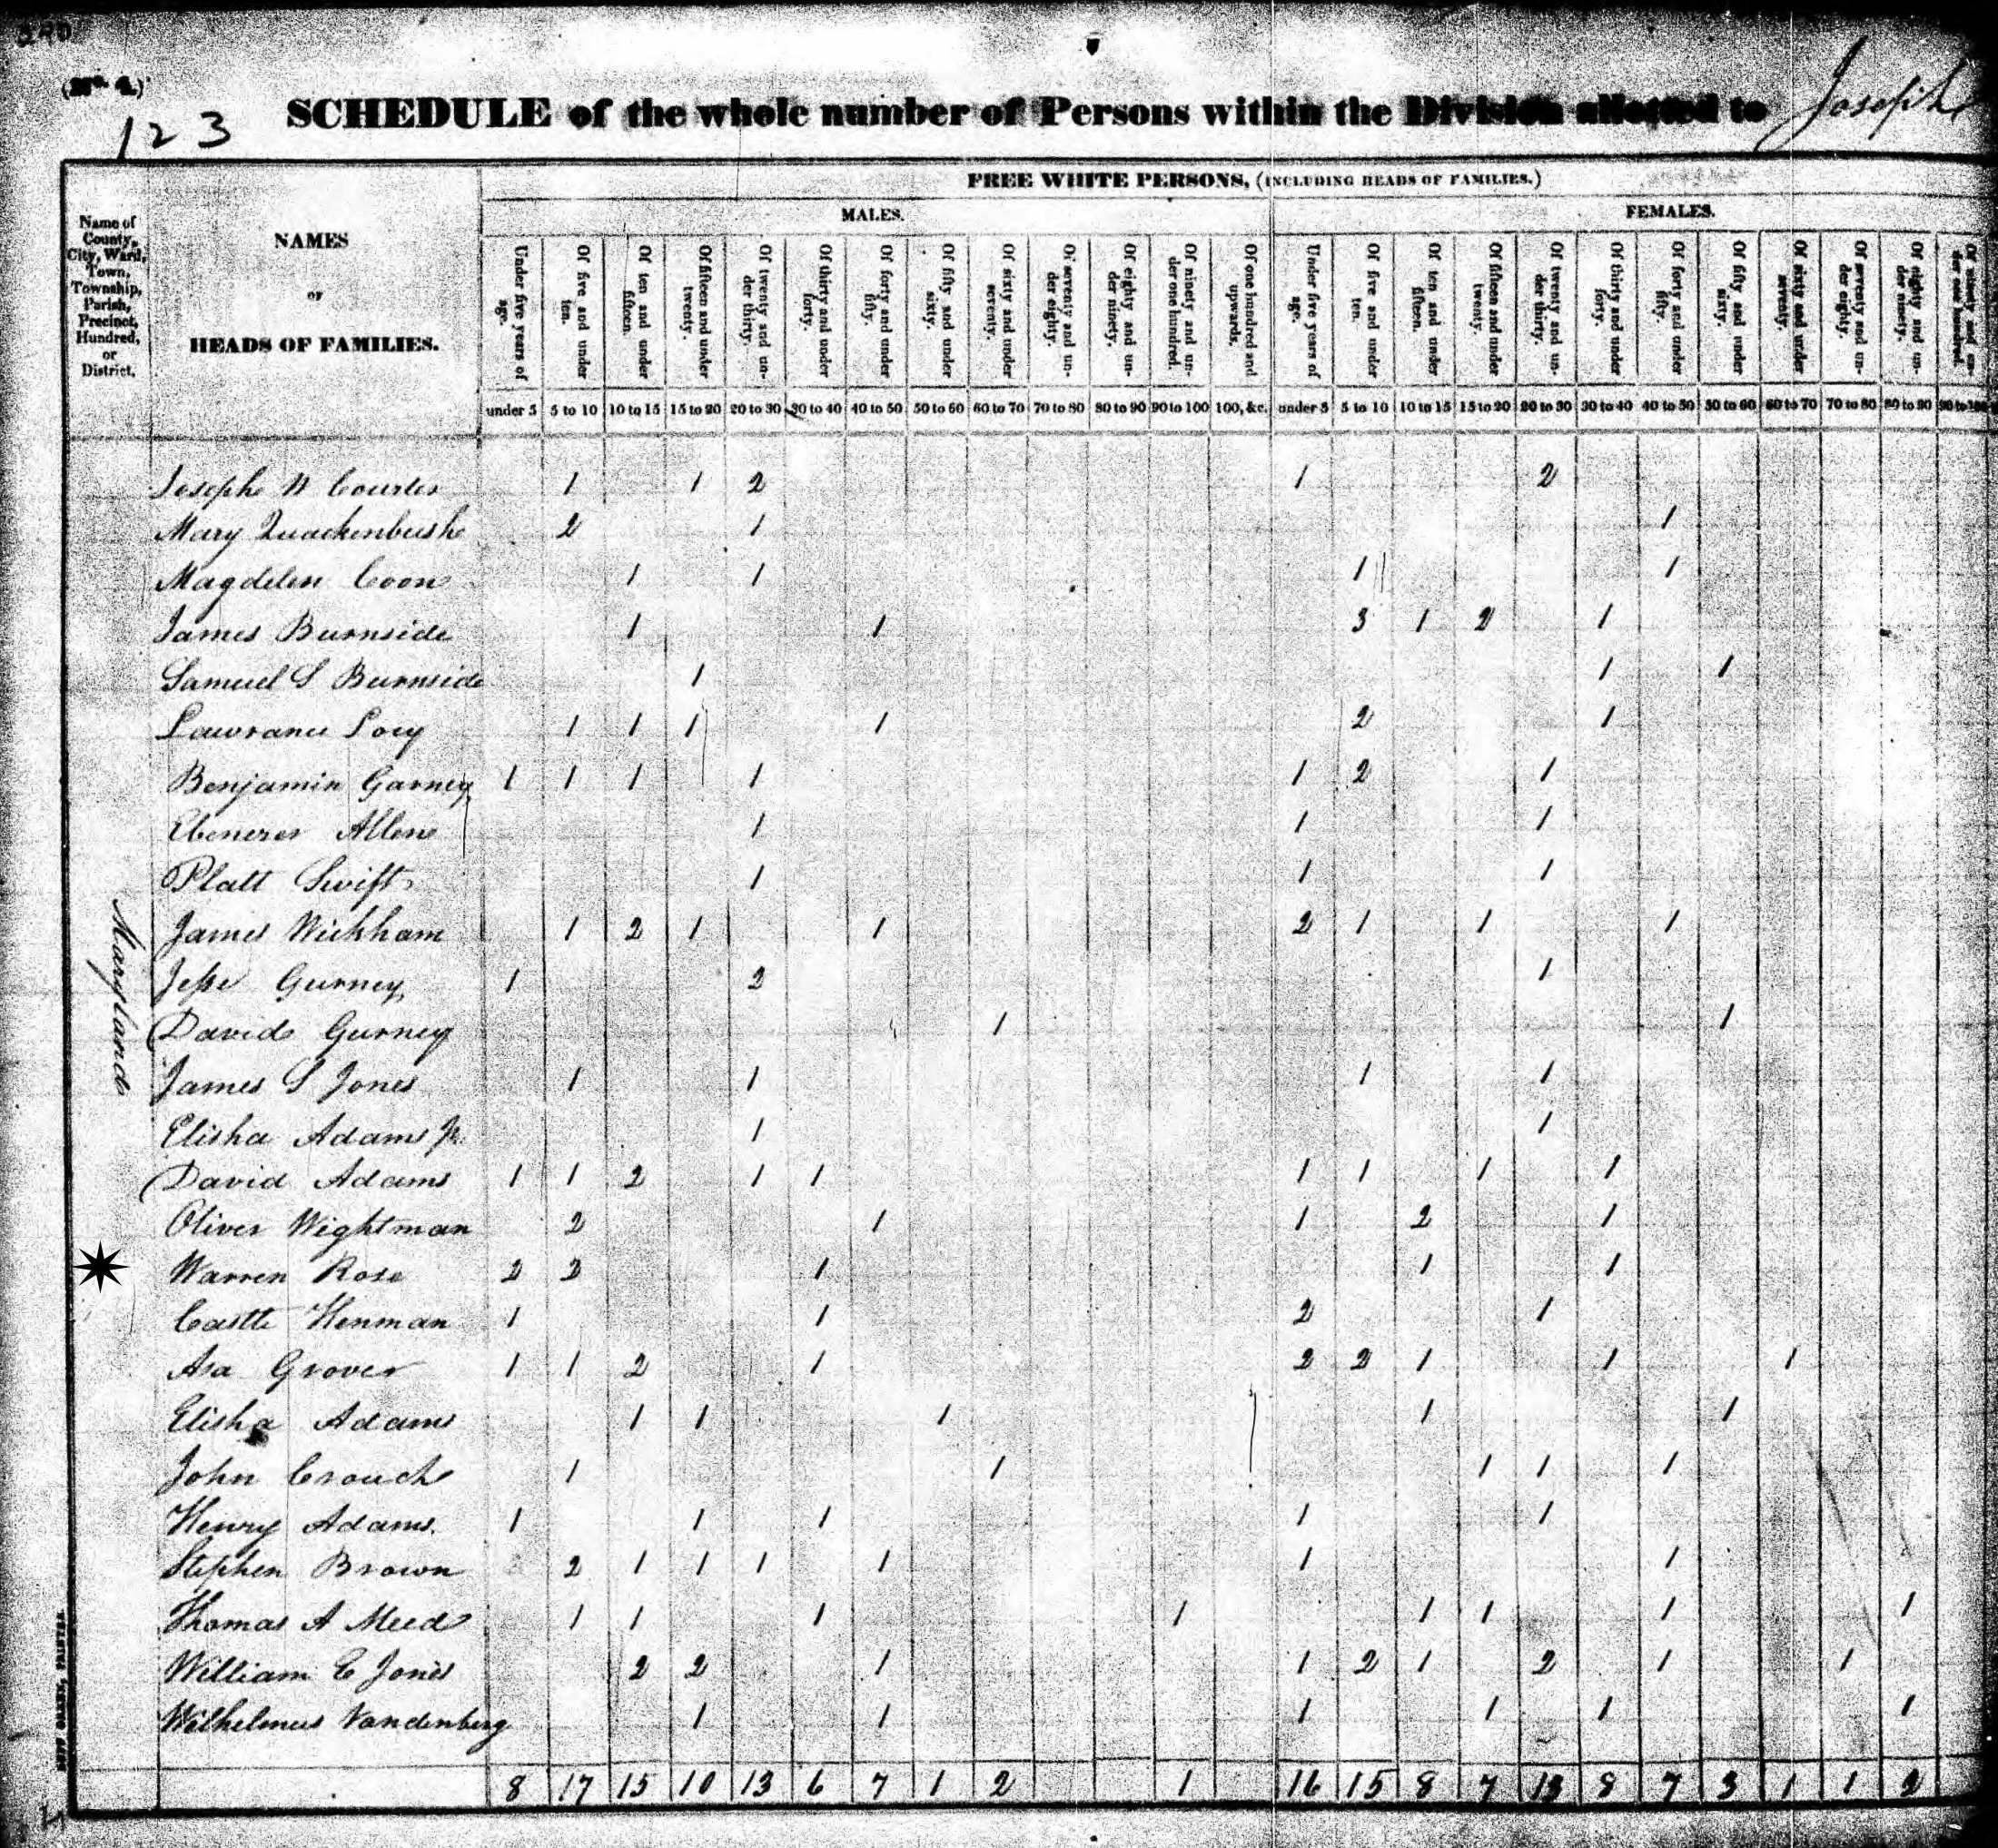 290
(No. 1.)
123
SCHEDULE of the whole number of Persons within the Division allotted to Joseph
FREE WHITE PERSONS, (INCLUDING HEADS OF FAMILIES.)
MALES. FEMALES.
Name of County, City, Ward, Town, Township, Parish, Precinct, Hundred, or District.
NAMES
OF
HEADS OF FAMILIES.
Under five years of age.
Of five and under ten.
Of ten and under fifteen.
Of fifteen and under twenty.
Of twenty and under thirty.
Of thirty and under forty.
Of forty and under fifty.
Of fifty and under sixty.
Of sixty and under seventy.
Of seventy and under eighty.
Of eighty and under ninety.
Of ninety and under one hundred.
Of one hundred and upwards.
Under five years of age.
Of five and under ten.
Of ten and under fifteen.
Of fifteen and under twenty.
Of twenty and under thirty.
Of thirty and under forty.
Of forty and under fifty.
Of fifty and under sixty.
Of sixty and under seventy.
Of seventy and under eighty.
Of eighty and under ninety.
Of ninety and under one hundred.
under 5 5 to 10 10 to 15 15 to 20 20 to 30 30 to 40 40 to 50 50 to 60 60 to 70 70 to 80 80 to 90 90 to 100 100, &c. under 5 5 to 10 10 to 15 15 to 20 20 to 30 30 to 40 40 to 50 50 to 60 60 to 70 70 to 80 80 to 90 90 to 100
Joseph N Courter 1 1 2 1 2
Mary Quackenbush 2 1 1
Magdelen Coon 1 1 1 1
James Burnside 1 1 3 1 2 1
Samuel S Burnside 1 1 1
Lawrance Loey 1 1 1 1 2 1
Benjamin Garney 1 1 1 1 1 2 1
Ebenezer Allen 1 1 1
Platt Swift 1 1 1
James Wickham 1 2 1 1 2 1 1 1
Jesse Gurney 1 2 1
David Gurney 1 1
James S Jones 1 1 1 1
Elisha Adams Jr. 1 1
David Adams 1 1 2 1 1 1 1 1 1
Oliver Wightman 2 1 1 2 1
Warren Rose 2 2 1 1 1
Castle Henman 1 1 2 1
Asa Grover 1 1 2 1 2 2 1 1 1
Elisha Adams 1 1 1 1 1
John Crouch 1 1 1 1 1
Henry Adams. 1 1 1 1 1
Stephen Brown 2 1 1 1 1 1 1
Thomas A Meed 1 1 1 1 1 1 1 1
William E Jones 2 2 1 1 2 1 2 1 1
Wilhelmus Vandenberg 1 1 1 1 1 1
8 17 15 10 13 6 7 1 2 1 16 15 8 7 13 8 7 3 1 1 2
Maryland